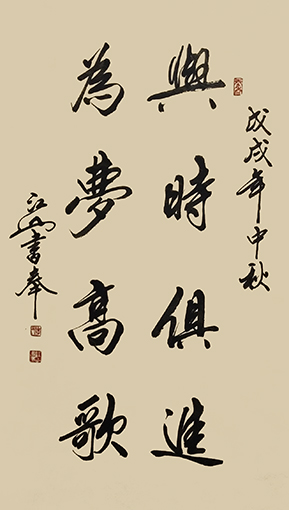 戊戌年中秋
與時俱進
為夢高歌
江山書奉